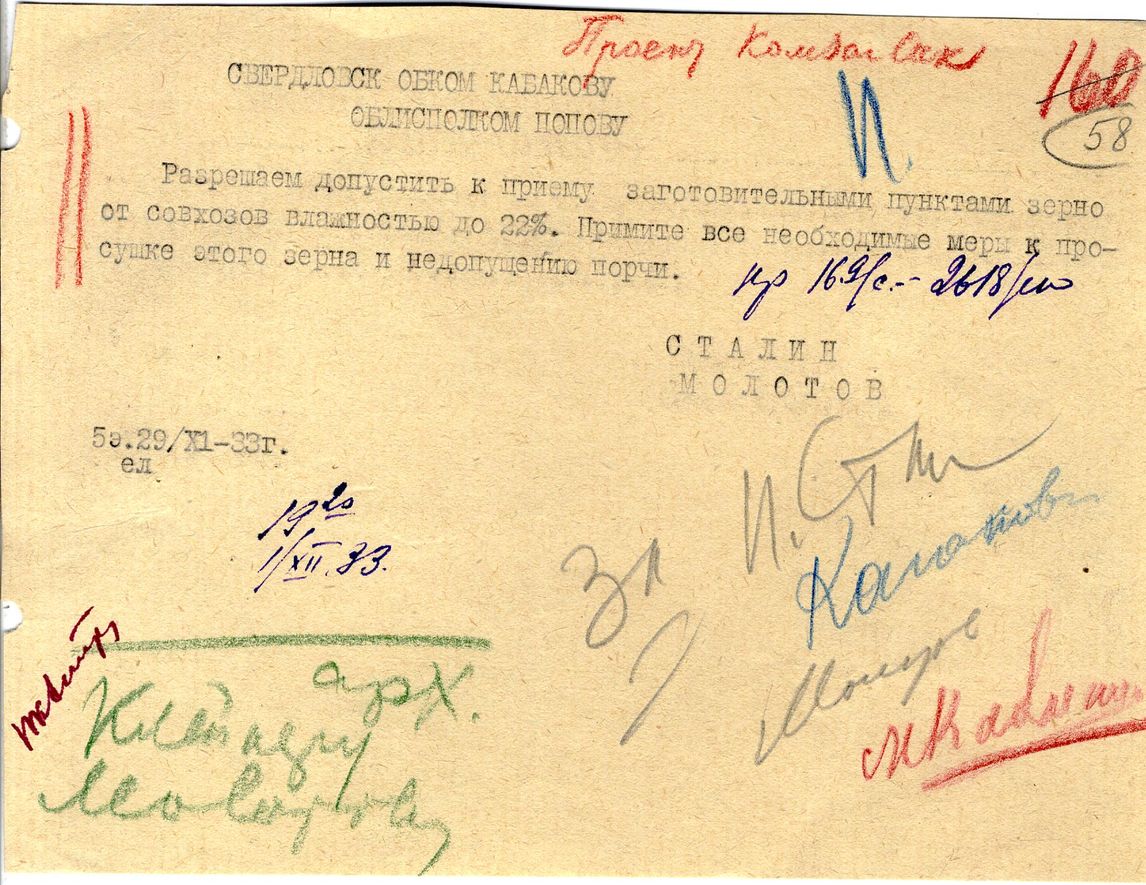 Проект
160
58
СВЕРДЛОВСК ОБКОМ КАБАКОВУ
ОБЛИСПОЛКОМ ПОПОВУ
Разрешаем допустить к приему заготовительными пунктами зерно
от совхозов влажностью до 22%. Примите все необходимые меры к про-
сушке этого зерна и недопущению порчи.
СТАЛИН
МОЛОТОВ
5э.29/X1-33г.
ел
19 20
1/XII.33.
За И. Ст
Каганович
Молотов
М Калинин
арх.
Клейнеру